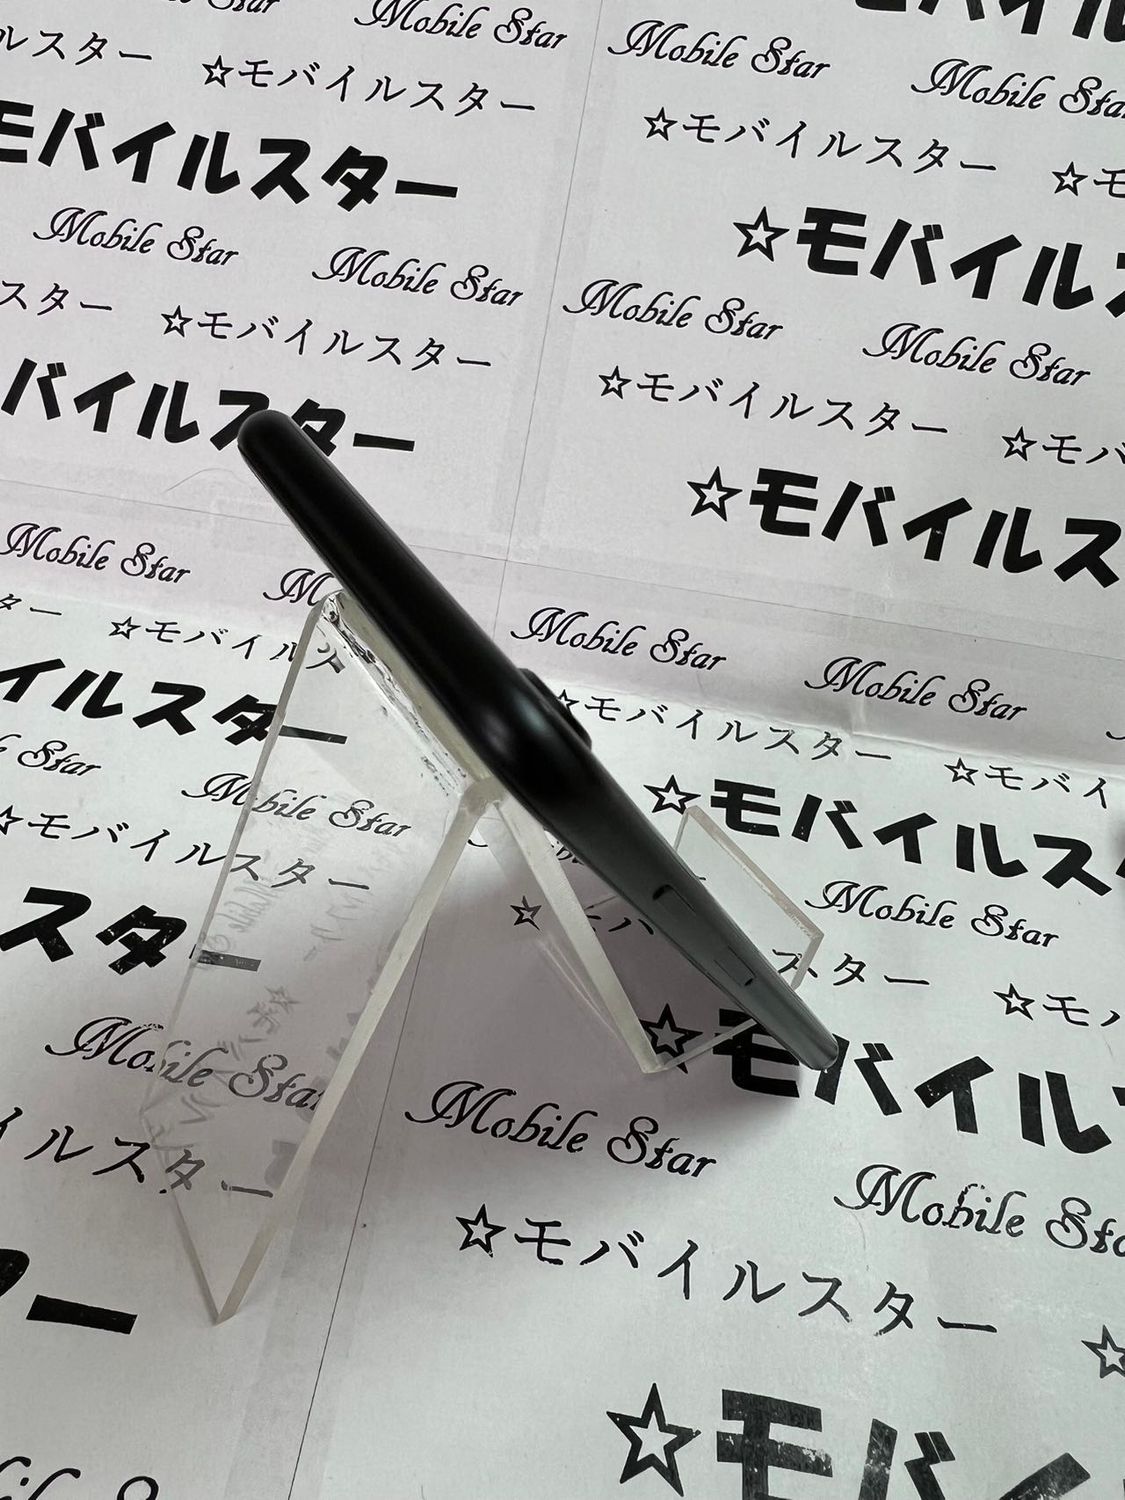 Mobile Star
Mobile Star
Mobile Star
ルスター ☆モバイルスター
☆モバイルスター ☆モ
モバイルスター
☆モバイル
Mobile Star Mobile Star
Mobile Star Mobile Star
スター ☆モバイルスター
☆モバイルスター ☆モバ
バイルスター
☆モバイルス
Mobile Star
Mobile Star Mobile Star
ター ☆モバイルス
☆モバイルスター ☆モバイ
イルスター
☆モバイルス
Star Mobile Star
Mobile Star
☆モバイルスター
スター ☆モバ
スター
☆モバイル
Mobile Star
Mobile Star Mobile Sta
イルスター
☆モバイルスター ☆
ター
☆モバイ